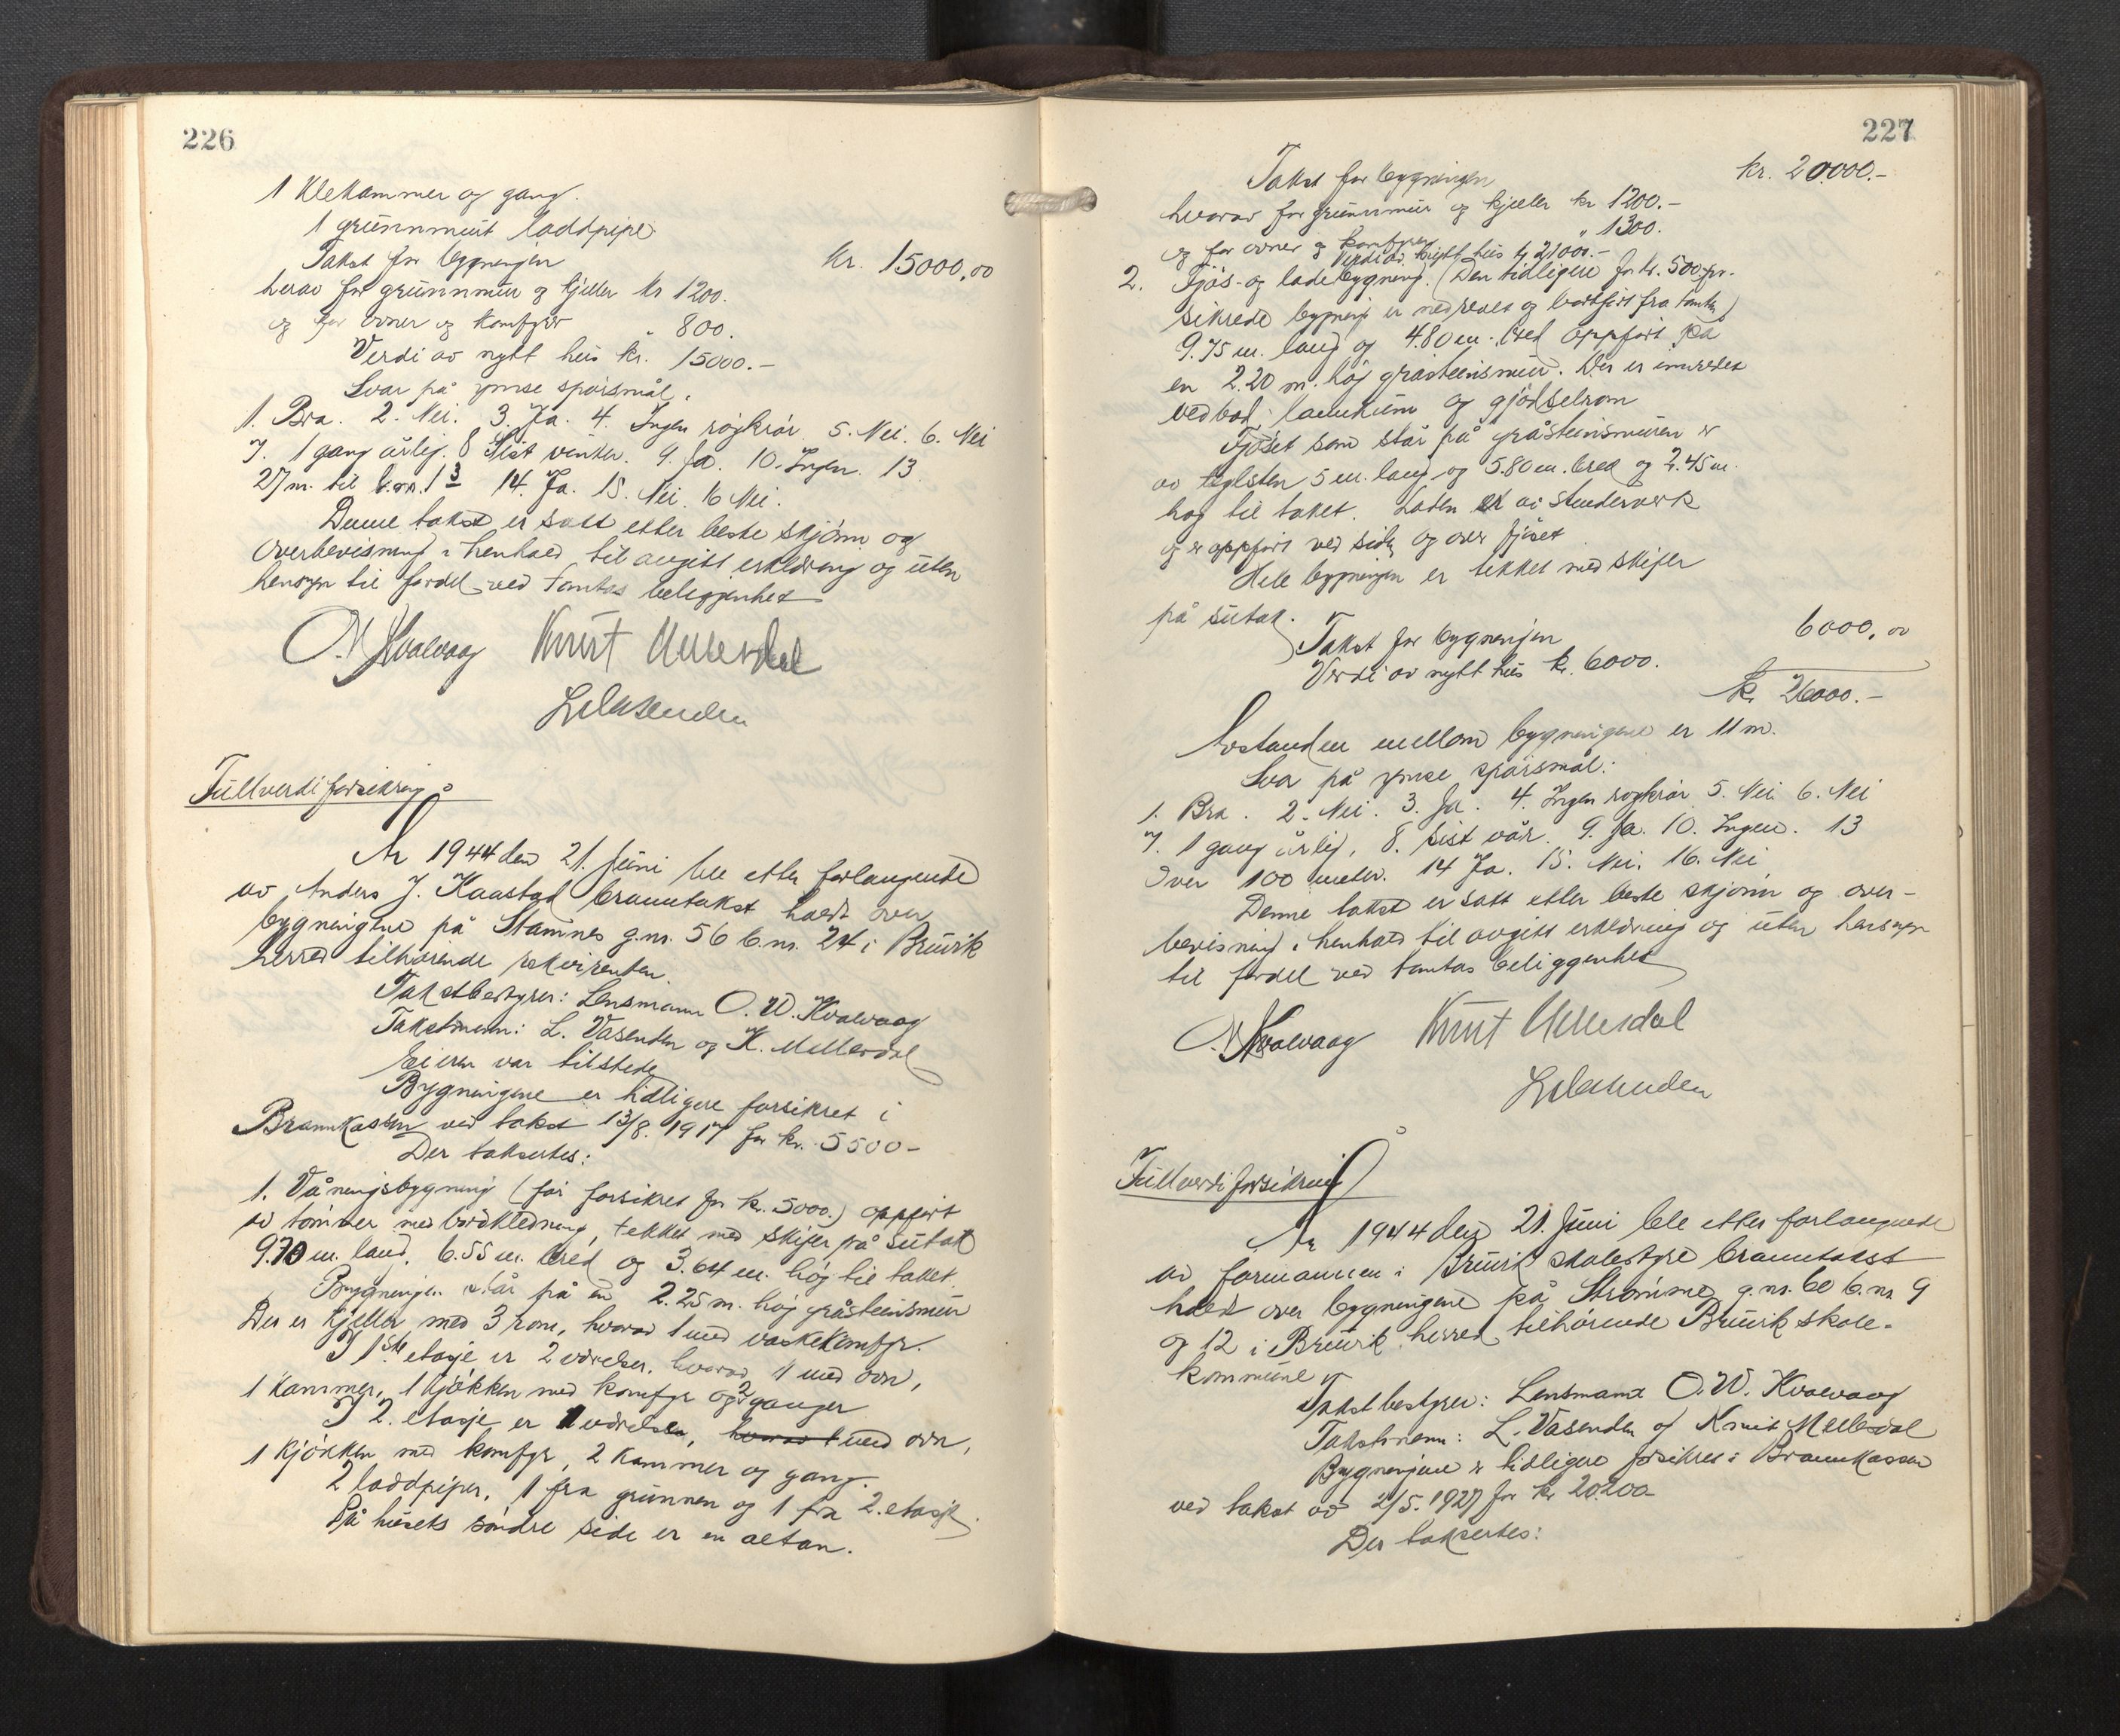 226
1 klekammer og gang.
1 grunnmurt loddpipe.
Takst for bygningen kr. 15000,00
herav for grunnmur og kjeller kr 1200.
og for ovner og komfyrer " 800.
Verdi av nytt hus kr. 15000.-
Svar på ymse spørsmål.
1. Bra. 2. Nei. 3. Ja. 4. Ingen røykrør 5. Nei. 6. Nei
7. 1 gang årlig. 8 Sist vinter. 9. Ja. 10. Ingen. 13
27 m. til b.nr. 13 14. Ja. 15. Nei. 16 Nei.
Denne takst er satt etter beste skjønn og
overbevisning i henhold til avgitt erklæring og uten
hensyn til fordel ved tomtas beliggenhet
O. W. Kvalvaag Knut Mellesdal
L. Vasenden
Fullverdiforsikring
År 1944 den 21. Juni ble etter forlangende
av Anders J. Kaastad branntakst holdt over
bygningene på Stamnes g.nr. 56 b.nr. 24 i Bruvik
herred tilhørende rekvirenten.
Takstbestyrer: Lensmann O. W. Kvalvaag
Takstmenn: L. Vasenden og K. Mellesdal
Eieren var tilstede
Bygningene er tidligere forsikret i
Brannkassen ved takst 13/8. 1917 for kr. 5500-
Der takseres:
1. Våningsbygning (før forsikret for kr. 5000.) oppført
av tømmer med bordkledning, tekket med skifer på sutak
9.70 m. land. 6.55 m. bred og 3.64 m. høg til taket.
Bygningen står på en 2.25 m. høg gråsteinsmur
Der er kjeller med 3 rom, hvorav 1 med vaskekomfyr.
I 1ste etasje er 2 værelser, hvorav 1 med ovn,
1 kammer, 1 kjøkken med komfyr og 2 ganger
I 2. etasje er 1 værelse, hvorav 1 med ovn,
1 kjøkken med komfyr, 2 kammer og gang.
2 loddpiper, 1 fra grunnen og 1 fra 2. etasje.
På husets søndre side er en altan.
227
Takst for bygningen kr. 20.000.-
hvorav for grunnmur og kjeller kr 1200.-
og for ovner og komfyrer " 1300.
Verdi av nytt hus kr 21000.-
2. Fjøs- og ladebygning. (Den tidligere for kr. 500 for-
sikrede bygning er nedrevet og bortført fra tomta)
9.75 m. lang og 4.80 m. bred oppført på
en 2.20 m. høg gråsteinsmur. Der er innredet
vedbod, landkum og gjødselrom
Fjøset som står på gråsteinsmuren er
av teglsten 5 m. lang og 5.80 m. bred og 2.45 m.
høg til taket. Laden er av stenderverk
og er oppført ved siden og over fjøset
Hele bygningen er tekket med skifer
på sutak.
Takst for bygningen 6000,00
Verdi av nytt hus kr. 6000.
kr 26000.-
Avstanden mellom bygningene er 11 m.
Svar på ymse spørsmål:
1. Bra. 2. Nei. 3. Ja. 4. Ingen røykrør 5. Nei 6. Nei
7. 1 gang årlig, 8. Sist vår. 9. Ja. 10. Ingen. 13
Over 100 meter. 14 Ja. 15. Nei. 16. Nei
Denne takst er satt etter beste skjønn og over-
bevisning i henhold til avgitt erklæring og uten hensyn
til fordel ved tomtas beliggenhet
O. W. Kvalvaag Knut Mellesdal
L. Vasenden
Fullverdiforsikring
År 1944 den 21. Juni ble etter forlangende
av formannen i Bruvik skolestyre branntakst
holdt over bygningene på Strømme g.nr. 60 b.nr 9
og 12 i Bruvik herred tilhørende Bruvik skole-
kommune
Takstbestyrer: Lensmann O. W. Kvalvaag
Takstmenn: L. Vasenden og Knut Mellesdal
Bygningene er tidligere forsikret i Brannkassen
ved takst av 2/5. 1927 for kr 20200-
Der takseres: